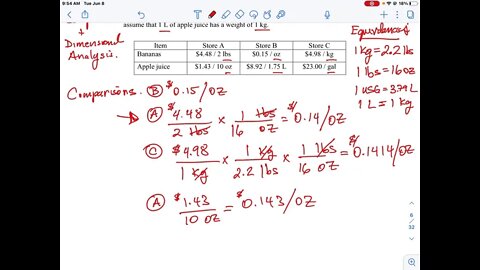 9:54 AM Tue Jun 8
18%
assume that 1 L of apple juice has a weight of 1 kg.
+
Dimensional
Analysis.
Equivalences
Item Store A Store B Store C
Bananas $4.48 / 2 lbs $0.15 / oz $4.98 / kg
Apple juice $1.43 / 10 oz $8.92 / 1.75 L $23.00 / gal
1 kg = 2.2 lb
1 lbs = 16 oz
1 L = 1 kg
Comparisons. B $0.15/oz
A $4.48 / 2 lbs × 1 lbs / 16 oz = $0.14/oz
C $4.98 / 1 kg × 1 kg / 2.2 lbs × 1 lbs / 16 oz = $0.1414/oz
A $1.43 / 10 oz = $0.143/oz
6
/
32